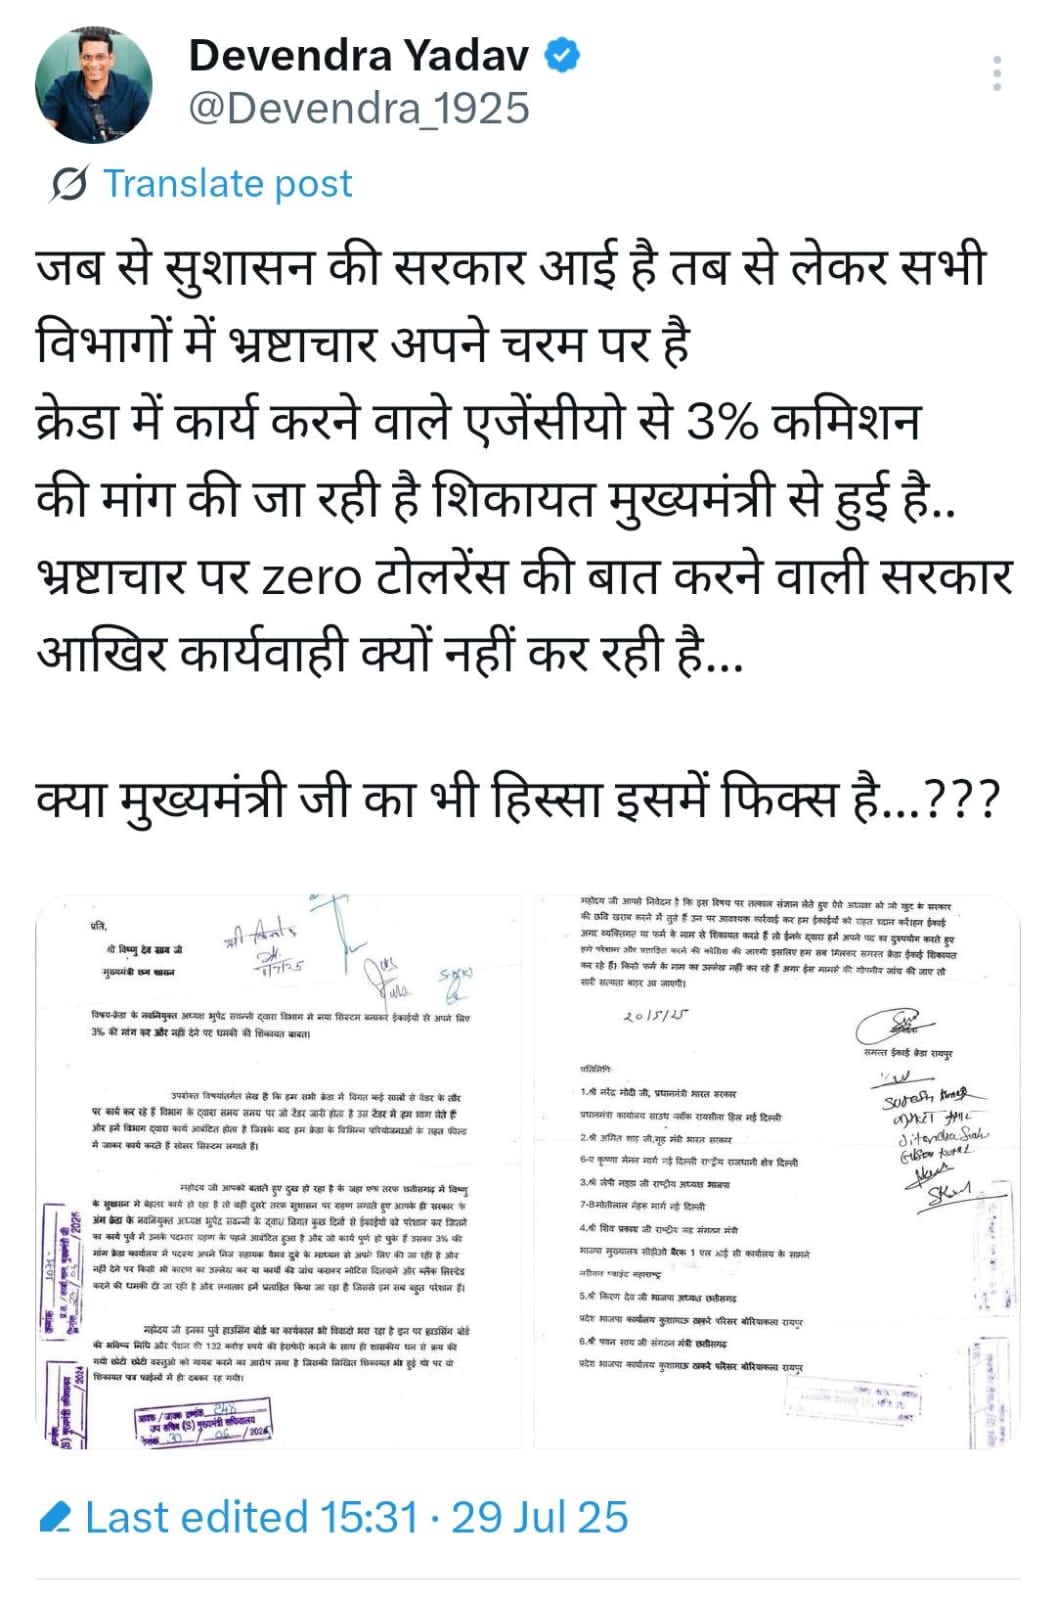 Devendra Yadav
@Devendra_1925
Translate post
जब से सुशासन की सरकार आई है तब से लेकर सभी
विभागों में भ्रष्टाचार अपने चरम पर है
क्रेडा में कार्य करने वाले एजेंसीयो से 3% कमिशन
की मांग की जा रही है शिकायत मुख्यमंत्री से हुई है..
भ्रष्टाचार पर zero टोलरेंस की बात करने वाली सरकार
आखिर कार्यवाही क्यों नहीं कर रही है...
क्या मुख्यमंत्री जी का भी हिस्सा इसमें फिक्स है...???
प्रति,
श्री विष्णु देव साय जी
मुख्यमंत्री छग शासन
विषय-क्रेडा के नवनियुक्त अध्यक्ष भुपेंद्र सवन्नी द्वारा विभाग में नया सिस्टम बनाकर ईकाईयो से अपने लिए
3% की मांग कर और नही देने पर धमकी की शिकायत बाबत।
उपरोक्त विषयांतर्गत लेख है कि हम सभी क्रेडा में विगत कई सालो से वेंडर के तौर
पर कार्य कर रहे हैं विभाग के द्वारा समय समय पर जो टेंडर जारी होता है उस टेंडर में हम भाग लेते हैं
और हमें विभाग द्वारा कार्य आबंटित होता है जिसके बाद हम क्रेडा के विभिन्न परियोजनाओ के तहत फील्ड
में जाकर कार्य करते हैं सोलर सिस्टम लगाते हैं।
महोदय जी आपको बताते हुए दुख हो रहा है के जहा एक तरफ छत्तीसगढ़ में विष्णु
के सुशासन में बेहतर कार्य हो रहा है तो वही दुसरे तरफ सुशासन पर ग्रहण लगाते हुए आपके ही सरकार के
अंग क्रेडा के नवनियुक्त अध्यक्ष भुपेंद्र सवन्नी के द्वारा विगत कुछ दिनों से ईकाईयों को परेशान कर जितने
का कार्य पुर्व में उनके पदभार ग्रहण के पहले आबंटित हुआ है और जो कार्य पुर्ण हो चुके हैं उसका 3% की
मांग क्रेडा कार्यालय में पदस्थ अपने निज सहायक वैभव दुबे के माध्यम से अपने लिए की जा रही है और
नही देने पर किसी भी कारण का उल्लेख कर या कार्यो की जांच कराकर नोटिस दिलवाने और ब्लैक लिस्टेड
करने की धमकी दी जा रही है और लगातार हमें प्रताड़ित किया जा रहा है जिससे हम सब बहुत परेशान हैं।
महोदय जी इनका पुर्व हाउसिंग बोर्ड का कार्यकाल भी विवादो भरा रहा है इन पर हाउसिंग बोर्ड
की भविष्य निधि और पेंशन की 132 करोड़ रुपये की हेराफेरी करने के साथ ही शासकीय धन से क्रय की
गयी छोटी छोटी वस्तुओ को गायब करने का आरोप लगा है जिसकी लिखित शिकायत भी हुई थी पर वो
शिकायत पत्र फाईलों में ही दबकर रह गयी।
महोदय जी आपसे निवेदन है कि इस विषय पर तत्काल संज्ञान लेते हुए ऐसे अध्यक्ष को जो खुद के सरकार
की छवि खराब करने में तुले हैं उन पर आवश्यक कार्रवाई कर हम ईकाईयों को राहत प्रदान करें।हम ईकाई
अगर व्यक्तिगत या फर्म के नाम से शिकायत करते हैं तो ईनके द्वारा हमें अपने पद का दुरूपयोग करते हुए
हमें परेशान और प्रताड़ित करने की कोशिश की जाएगी इसलिए हम सब मिलकर समस्त क्रेडा ईकाई शिकायत
कर रहे हैं। किसी फर्म के नाम का उल्लेख नही कर रहे हैं अगर इस मामले की गोपनीय जांच की जाए तो
सारी सत्यता बाहर आ जाएगी।
20/5/25
समस्त ईकाई क्रेडा रायपुर
प्रतिलिपि-
1.श्री नरेंद्र मोदी जी, प्रधानमंत्री भारत सरकार
प्रधानमंत्री कार्यालय साउथ ब्लॉक रायसीना हिल नई दिल्ली
2.श्री अमित शाह जी,गृह मंत्री भारत सरकार
6-ए कृष्णा मेनन मार्ग नई दिल्ली राष्ट्रीय राजधानी क्षेत्र दिल्ली
3.श्री जेपी नड्डा जी राष्ट्रीय अध्यक्ष भाजपा
7-बीमोतीलाल नेहरू मार्ग नई दिल्ली
4.श्री शिव प्रकाश जी राष्ट्रीय सह संगठन मंत्री
भाजपा मुख्यालय सीडीओ बैरक 1 एल आई सी कार्यालय के सामने
नरीमन प्वाइंट महाराष्ट्र
5.श्री किरण देव जी भाजपा अध्यक्ष छत्तीसगढ़
प्रदेश भाजपा कार्यालय कुशाभाऊ ठाकरे परिसर बोरियाकला रायपुर
6.श्री पवन साय जी संगठन मंत्री छत्तीसगढ़
प्रदेश भाजपा कार्यालय कुशाभाऊ ठाकरे परिसर बोरियाकला रायपुर
Last edited 15:31 · 29 Jul 25